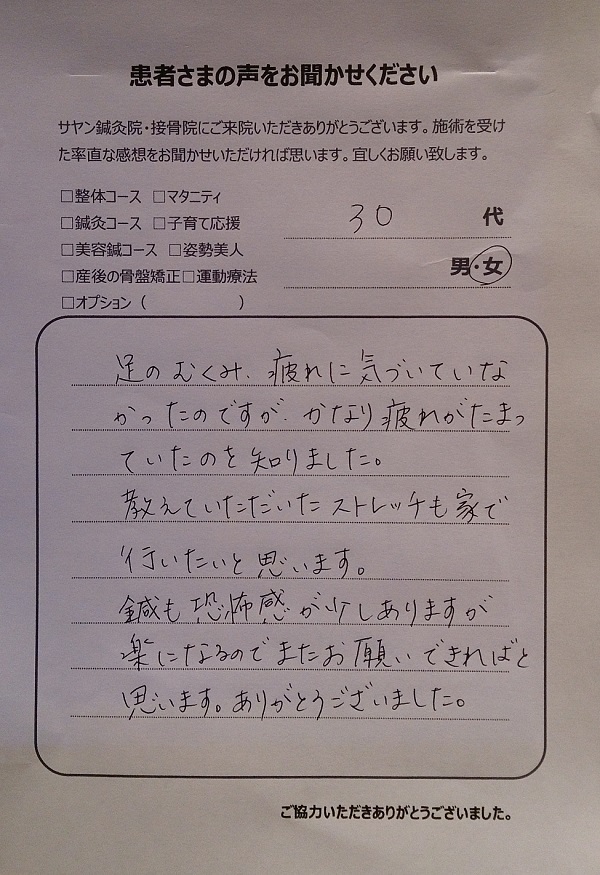 患者さまの声をお聞かせください
サヤン鍼灸院・接骨院にご来院いただきありがとうございます。施術を受け
た率直な感想をお聞かせいただければ思います。宜しくお願い致します。
□整体コース □マタニティ
□鍼灸コース □子育て応援
□美容鍼コース □姿勢美人
□産後の骨盤矯正□運動療法
□オプション（ ）
30 代
男・女
足のむくみ、疲れに気づいていな
かったのですが、かなり疲れがたまっ
ていたのを知りました。
教えていただいたストレッチも家で
行いたいと思います。
鍼も恐怖感が少しありますが
楽になるのでまたお願いできればと
思います。ありがとうございました。
ご協力いただきありがとうございました。